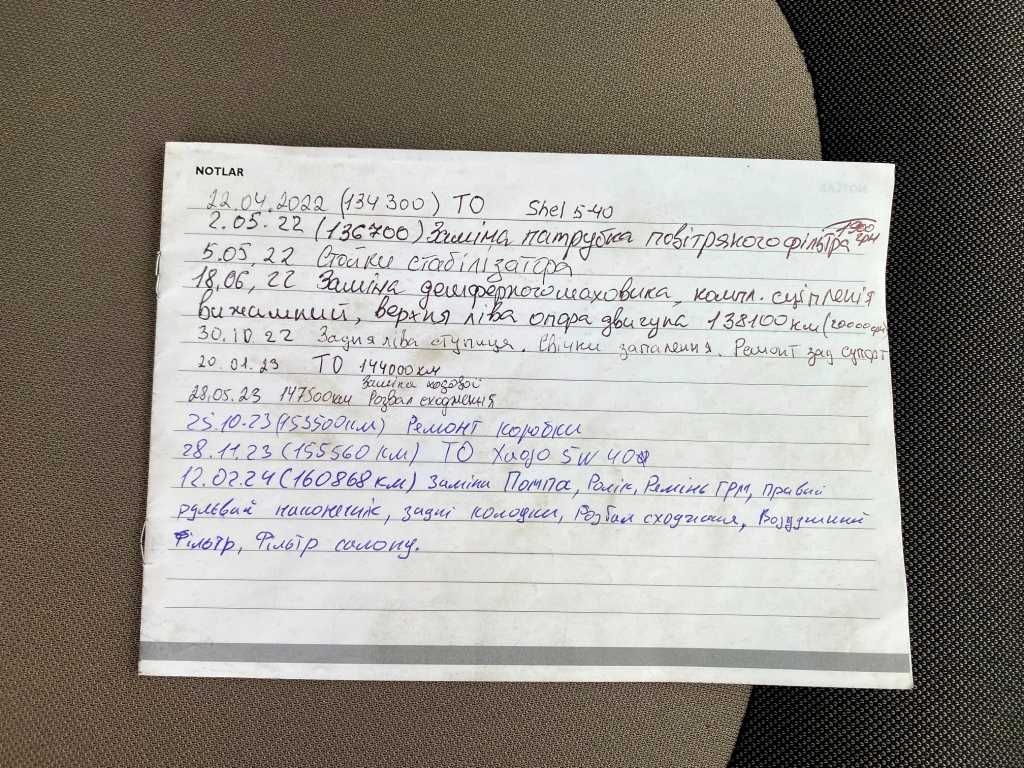 NOTLAR
22.04.2022 (134300) ТО Shel 5-40
2.05.22 (136700) Заміна патрубка повітряного фільтра 1900 грн
5.05.22 Стойки стабілізатора
18.06.22 Заміна демферного маховика, компл. сціплення
вижамний, верхня ліва опора двигуна 138100 км (20000 грн
30.10.22 Задня ліва ступиця. Свічки запалення. Ремонт зад супорт
20.01.23 ТО 144000 км
заміна
28.05.23 147500 км Розвал сходження
25.10.23 (153500 км) Ремонт коробки
28.11.23 (155560 км) ТО Хадо 5W40
12.02.24 (160868 км) Заміна Помпа, Ролік, Ремінь ГРМ, правий
рульвай наконечнік, задні колодки, Розвал сходження, Воздушний
Фільтр, Фільтр салону.